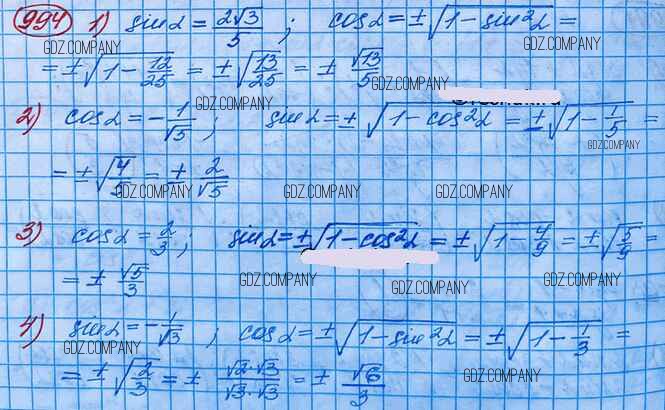 994 1) sinα = 2√3/5 ; cosα = ±√(1 − sin²α) =
GDZ.COMPANY GDZ.COMPANY
= ±√(1 − 12/25) = ±√(13/25) = ± √13/5
GDZ.COMPANY GDZ.COMPANY
2) cosα = −1/√5 ; sinα = ±√(1 − cos²α) = ±√(1 − 1/5) =
GDZ.COMPANY GDZ.COMPANY
= ±√(4/5) = ± 2/√5
GDZ.COMPANY GDZ.COMPANY GDZ.COMPANY
3) cosα = 2/3 ; sinα = ±√(1 − cos²α) = ±√(1 − 4/9) = ±√(5/9) =
= ± √5/3
GDZ.COMPANY GDZ.COMPANY GDZ.COMPANY
4) sinα = −1/√3 ; cosα = ±√(1 − sin²α) = ±√(1 − 1/3) =
GDZ.COMPANY GDZ.COMPANY
= ±√(2/3) = ± √2·√3/√3·√3 = ± √6/3
GDZ.COMPANY